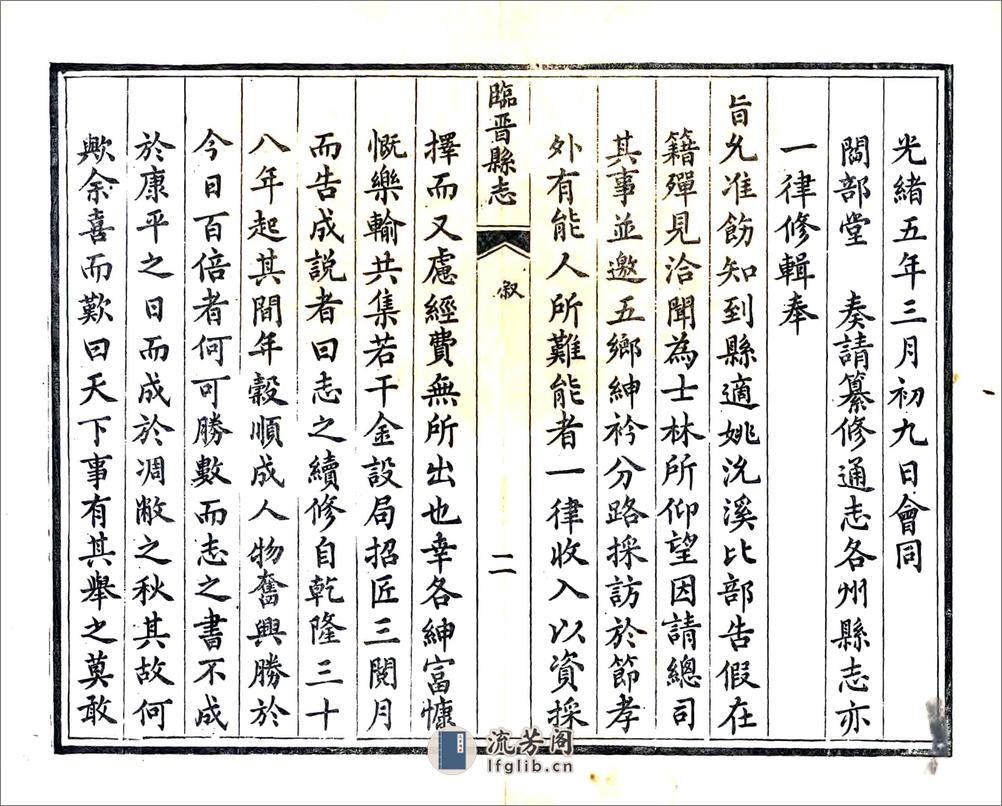 光緒五年三月初九日會同
閻部堂　奏請纂修通志各州縣志亦
一律修輯奉
旨允准飭知到縣適姚沇溪比部告假在
籍殫見洽聞為士林所仰望因請總司
其事並邀五鄉紳衿分路採訪於節孝
外有能人所難能者一律收入以資採
臨晉縣志　叙　二
擇而又慮經費無所出也幸各紳富慷
慨樂輸共集若干金設局招匠三閱月
而告成説者曰志之續修自乾隆三十
八年起其間年穀順成人物奮興勝於
今日百倍者何可勝數而志之書不成
於康平之日而成於凋敝之秋其故何
歟余喜而歎曰天下事有其舉之莫敢
流芳阁
lfglib.cn